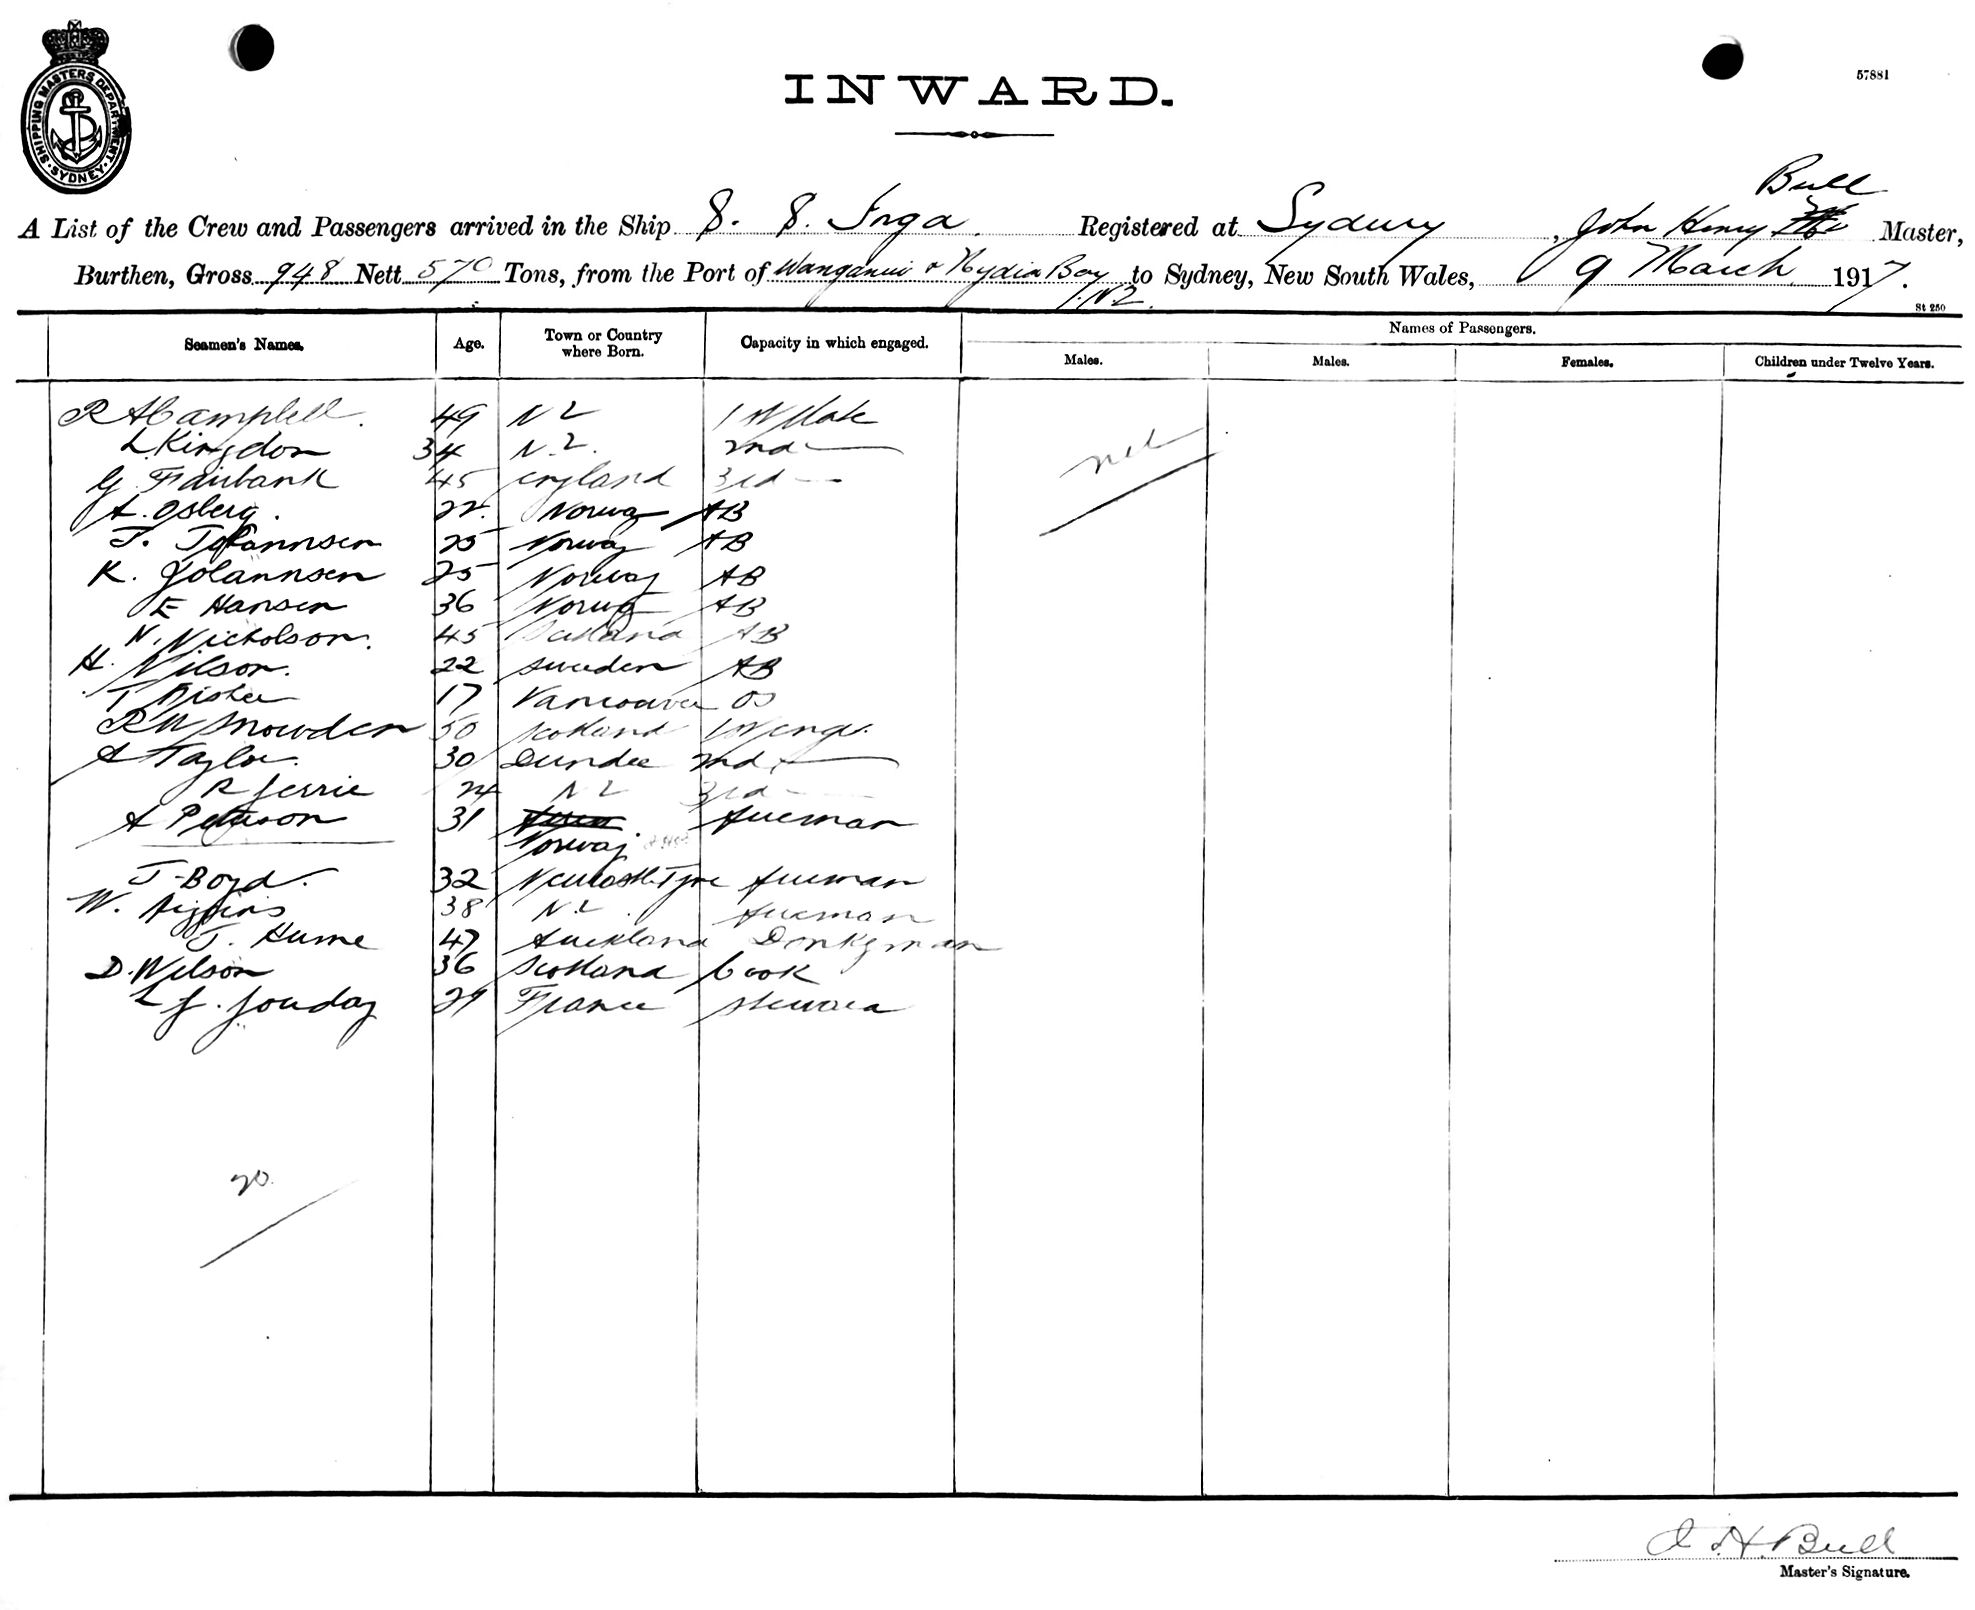 SHIPPING MASTERS DEPARTMENT. SYDNEY
57881
INWARD.
Bull
A List of the Crew and Passengers arrived in the Ship S. S. Inga. Registered at Sydney, John Henry Master,
Burthen, Gross 948 Nett 570 Tons, from the Port of Wanganui & Nydia Bay to Sydney, New South Wales, 9 March 1917.
N.Z.
St 250
Seamen's Names. Age. Town or Country where Born. Capacity in which engaged. Names of Passengers.
Males. Males. Females. Children under Twelve Years.
R A Campbell. 49 N Z 1st Mate
L. Kingdon 34 N.Z. 2nd —
nil
G Fairbank 45 England 3rd —
A. Osberg. 22. Norway AB
T. Johannsen 25 Norway AB
K. Johannsen 25 Norway AB
E Hansen 36 Norway AB
N. Nicholson. 45 Scotland AB
H. Nilson. 22 Sweden AB
T 17 Vancouver OS
R W Snowden 50 Scotland 1st Eng.
A Taylor. 30 Dundee 2nd —
R Jerrie 24 N Z 3rd —
A Peterson 31 Fireman
Norway
J Boyd. 32 Newcastle Tyne Fireman
W. Higgins 38 N.Z. Fireman
J. Hume 47 Auckland Donkeyman
D. Wilson 36 Scotland Cook
L J. Jouday 29 France Steward
20
J. H. Bull
Master's Signature.